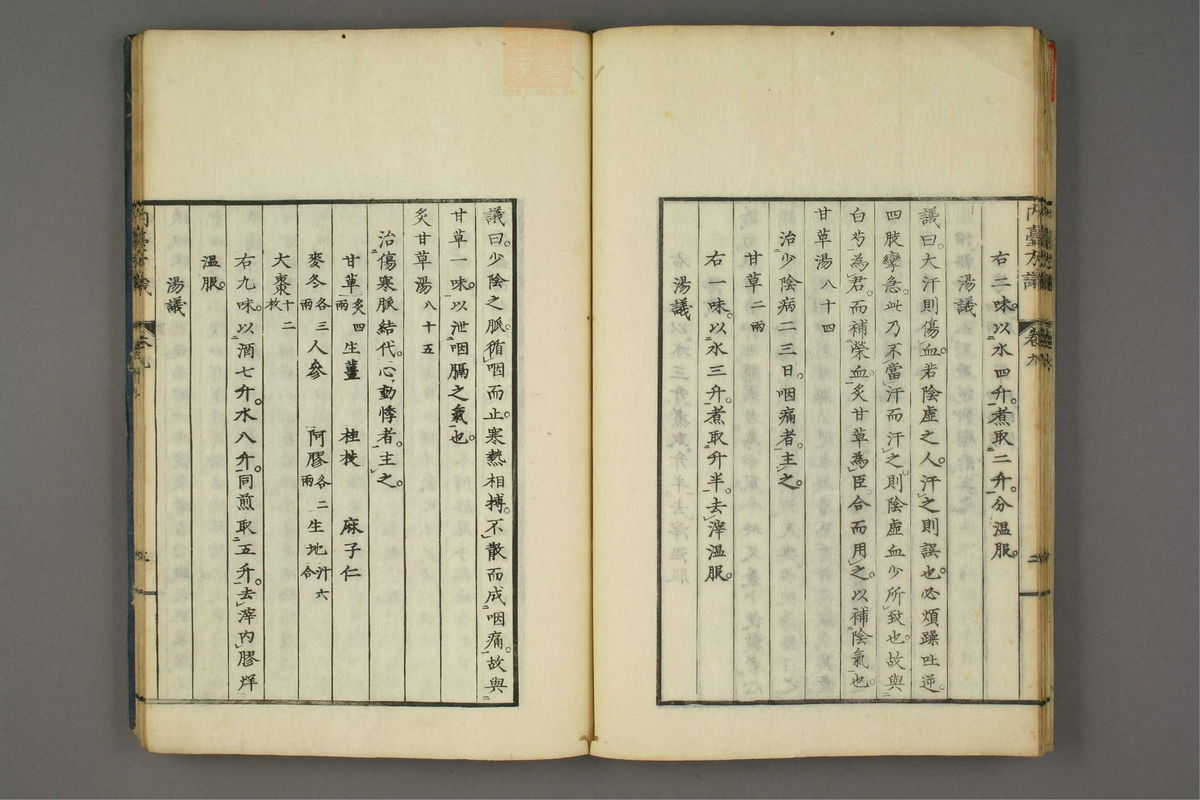 右二味。以水四升。煮取二升。分温服。
湯議
議曰。大汗則傷血。若陰虛之人。汗之則誤也。必煩躁吐逆。
四肢攣急。此乃不當汗而汗之。則陰虛血少所致也。故與
白芍為君。而補榮血。炙甘草為臣。合而用之。以補陰氣也。
甘草湯八十四
治少陰病二三日。咽痛者。主之。
甘草二兩
右一味。以水三升。煮取升半。去滓温服。
湯議
議曰。少陰之脈。循咽而止。寒熱相搏。不散而成咽痛。故與
甘草一味。以泄咽膈之氣也。
炙甘草湯八十五
治傷寒脈結代。心動悸者。主之。
甘草炙四兩 生薑 桂枝 麻子仁
麥冬各三兩 人參 阿膠各二兩 生地汁六合
大棗十二枚
右九味。以酒七升。水八升。同煎取五升。去滓内膠烊
温服。
湯議